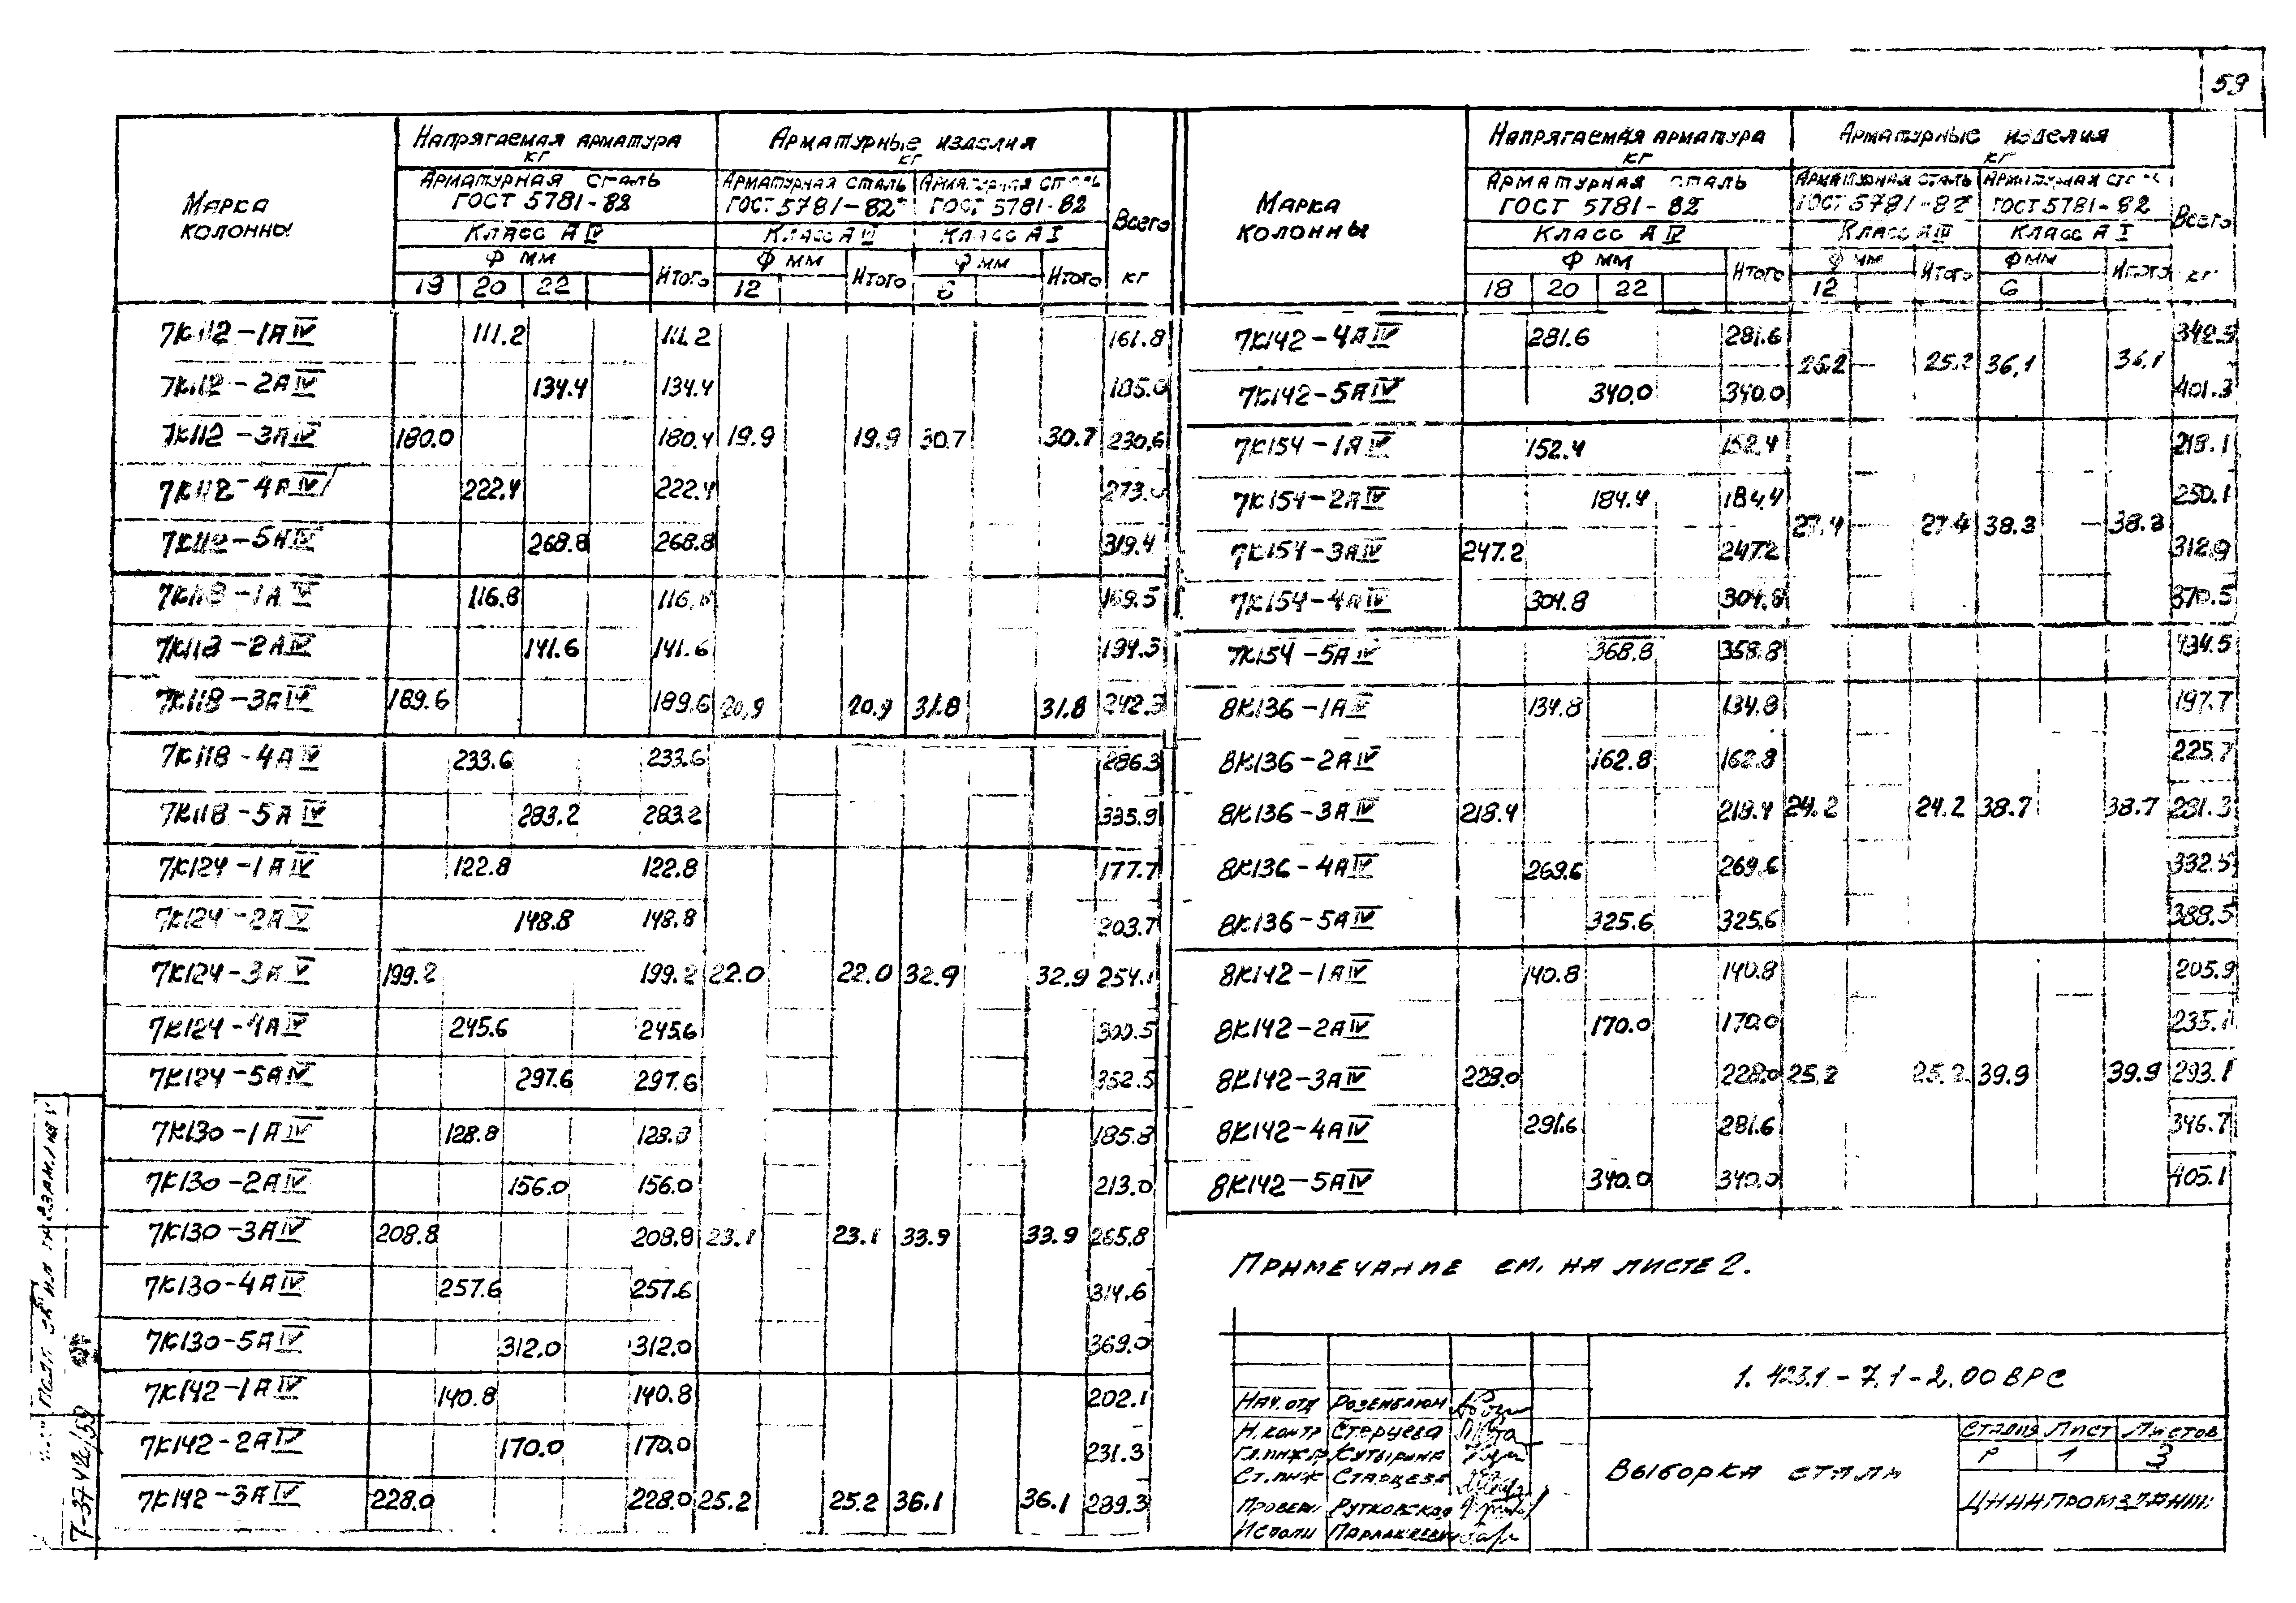 59
Марка колонны | Напрягаемая арматура кг | Арматурные изделия кг | Всего кг
Арматурная сталь ГОСТ 5781-82 | Арматурная сталь ГОСТ 5781-82 | Арматурная сталь ГОСТ 5781-82
Класс А IV | Класс А III | Класс А I
Ф мм | Итого | Ф мм | Итого | Ф мм | Итого
18 | 20 | 22 | 12 | 6
7К112-1А IV 111.2 111.2 161.8
7К112-2А IV 134.4 134.4 185.0
7К112-3А IV 180.0 180.4 19.9 19.9 30.7 30.7 230.6
7К112-4А IV 222.4 222.4 273.0
7К112-5А IV 268.8 268.8 319.4
7К118-1А IV 116.8 116.8 169.5
7К118-2А IV 141.6 141.6 194.3
7К118-3А IV 189.6 189.6 20.9 20.9 31.8 31.8 242.3
7К118-4А IV 233.6 233.6 286.3
7К118-5А IV 283.2 283.2 335.9
7К124-1А IV 122.8 122.8 177.7
7К124-2А IV 148.8 148.8 203.7
7К124-3А IV 199.2 199.2 22.0 22.0 32.9 32.9 254.1
7К124-4А IV 245.6 245.6 300.5
7К124-5А IV 297.6 297.6 352.5
7К130-1А IV 128.8 128.8 185.8
7К130-2А IV 156.0 156.0 213.0
7К130-3А IV 208.8 208.8 23.1 23.1 33.9 33.9 265.8
7К130-4А IV 257.6 257.6 314.6
7К130-5А IV 312.0 312.0 369.0
7К142-1А IV 140.8 140.8 202.1
7К142-2А IV 170.0 170.0 231.3
7К142-3А IV 228.0 228.0 25.2 25.2 36.1 36.1 289.3
Марка колонны | Напрягаемая арматура кг | Арматурные изделия кг | Всего кг
Арматурная сталь ГОСТ 5781-82 | Арматурная сталь ГОСТ 5781-82 | Арматурная сталь ГОСТ 5781-82
Класс А IV | Класс А III | Класс А I
Ф мм | Итого | Ф мм | Итого | Ф мм | Итого
18 | 20 | 22 | 12 | 6
7К142-4А IV 281.6 281.6 342.9
25.2 25.2 36.1 36.1
7К142-5А IV 340.0 340.0 401.3
7К154-1А IV 152.4 152.4 218.1
7К154-2А IV 184.4 184.4 250.1
27.4 27.4 38.3 38.3
7К154-3А IV 247.2 247.2 312.9
7К154-4А IV 304.8 304.8 370.5
7К154-5А IV 368.8 368.8 434.5
8К136-1А IV 134.8 134.8 197.7
8К136-2А IV 162.8 162.8 225.7
8К136-3А IV 218.4 218.4 24.2 24.2 38.7 38.7 281.3
8К136-4А IV 269.6 269.6 332.5
8К136-5А IV 325.6 325.6 388.5
8К142-1А IV 140.8 140.8 205.9
8К142-2А IV 170.0 170.0 235.1
8К142-3А IV 228.0 228.0 25.2 25.2 39.9 39.9 293.1
8К142-4А IV 291.6 281.6 346.7
8К142-5А IV 340.0 340.0 405.1
Примечание см. на листе 2.
1.423.1-7.1-2.00 ВРС
Нач. отд Розенблюм
Н. контр Старцева
Гл.инж.пр Кутырина
Ст. инж Старцева
Провери Рутковская
Исполн
Выборка стали
Стадия Лист Листов
Р 1 3
ЦНИИпромзданий
Т-3742/59